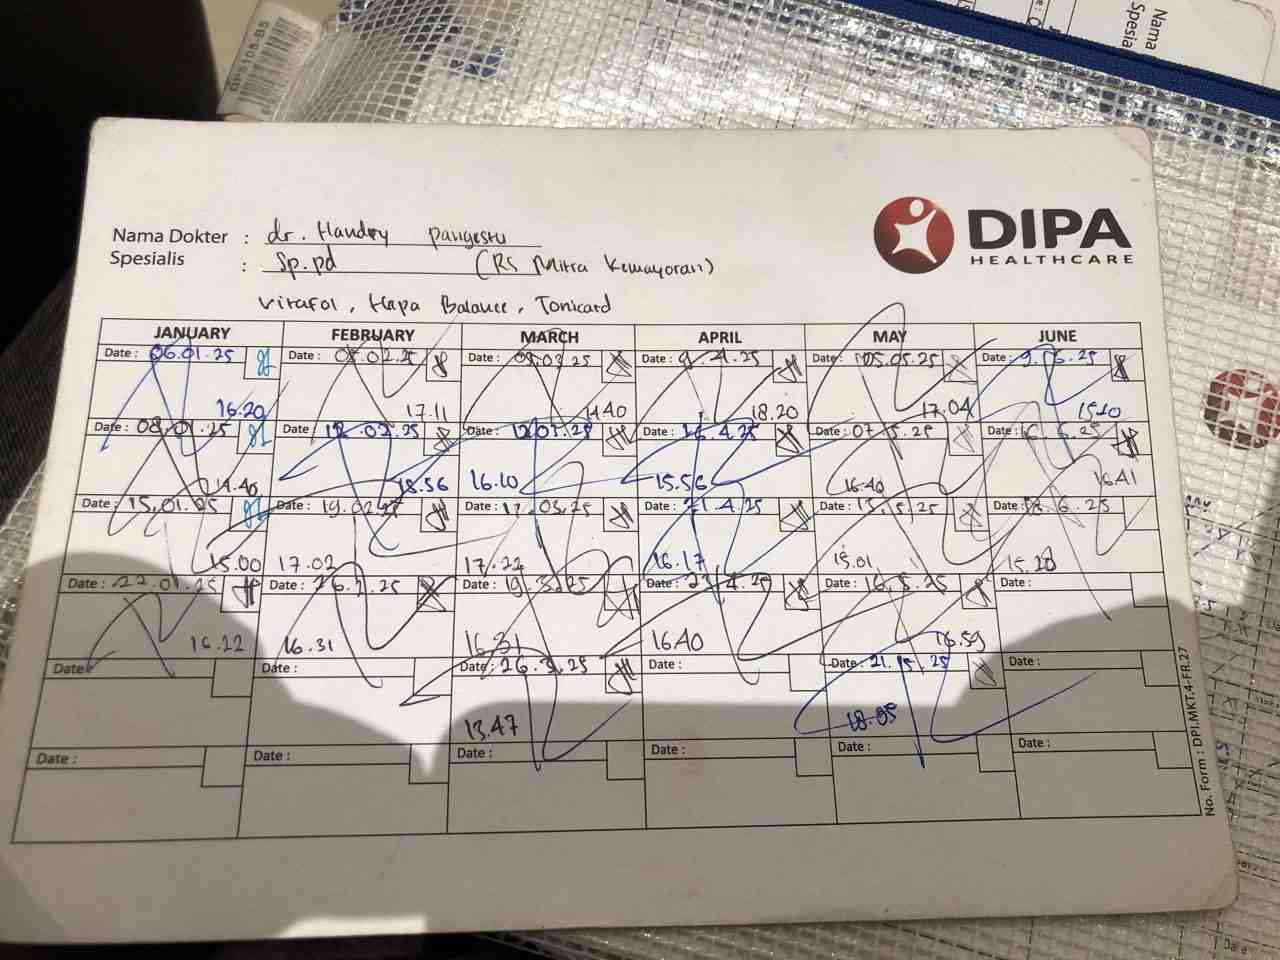 Nama
Spesia
Nama Dokter : dr. Handry pangestu
Spesialis : Sp.pd (RS Mitra Kemayoran)
DIPA
HEALTHCARE
Vitafol, Hepa Balance, Tonicard
JANUARY FEBRUARY MARCH APRIL MAY JUNE
Date : 06.01.25 Date : 05.02.25 Date : 03.25 Date : 9.4.25 Date : 05.05.25 Date : 9.6.25
16.20 17.11 14.40 18.20 17.04 15.10
Date : 08.01.25 Date : 12.02.25 Date : 12.03.25 Date : 16.4.25 Date : 07.5.25 Date : 16.6.25
14.40 18.56 16.10 15.56 16.40 16.41
Date : 15.01.25 Date : 19.02.25 Date : 17.03.25 Date : 21.4.25 Date : 15.5.25 Date : 18.6.25
15.00 17.02 17.22 16.17 15.01 15.20
Date : 22.01.25 Date : 26.2.25 Date : 19.3.25 Date : 23.4.25 Date : 16.5.25 Date :
16.22 16.31 16.31 16.40 16.59
Date : Date : Date : 26.3.25 Date : Date : 21.5.25 Date :
13.47 18.05
Date : Date : Date : Date : Date : Date :
No. Form : DPI.MKT.4-FR.27